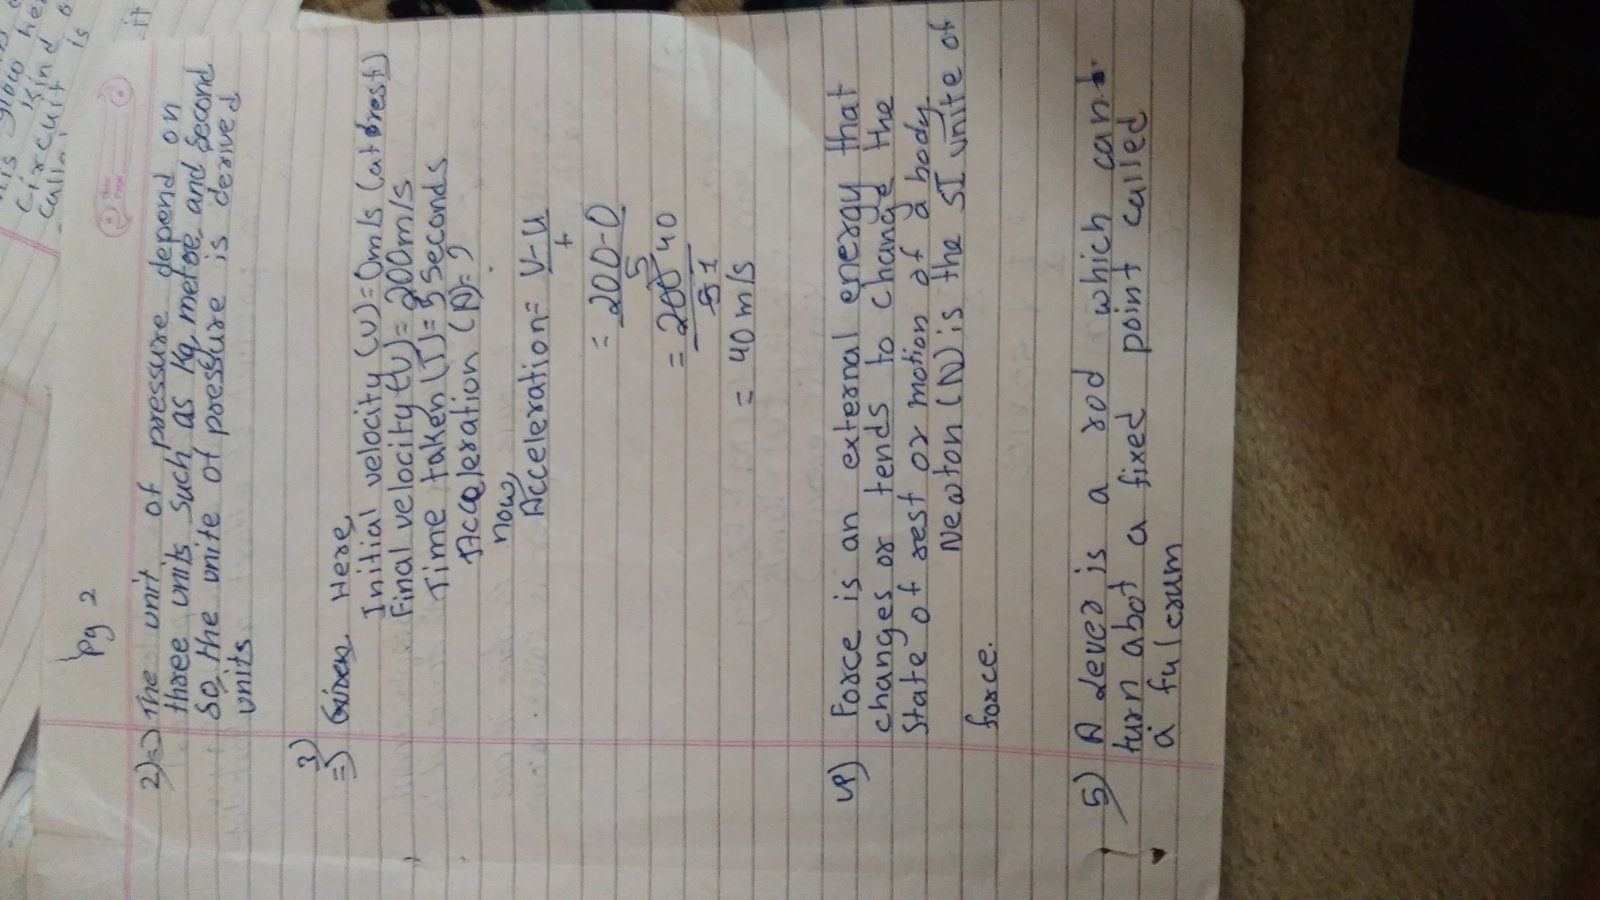 Pg 2
2)=) The unit of pressure depend on
three units such as Kg, metre and second
So, the unite of pressure is derived
units
3)
=) Given Here,
Initial velocity (U) = 0m/s (at rest)
Final velocity (V) = 200m/s
Time taken (T) = 5 Seconds
Acceleration (A) = ?
now,
Acceleration = V-U
t
= 200-0
5
= 200 40
5 1
= 40 m/s
4) Force is an external energy that
changes or tends to change the
State of rest or motion of a body.
Newton (N) is the SI unite of
force.
5) A Lever is a rod which can
turn abot a fixed point called
a fulcrum
circuit
Kind
is
it